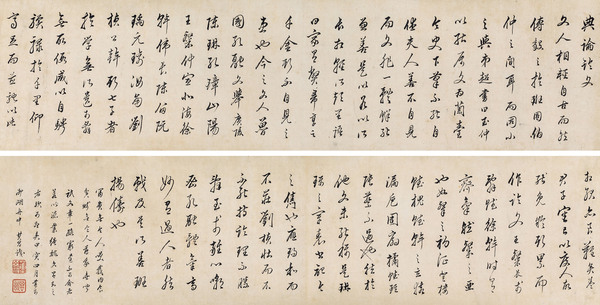 典論論文
文人相輕自古而然
傅毅之於班固伯
仲之間耳而固小
之與弟超書曰武仲
以能屬文為蘭臺
令史下筆不能自
休夫人善不自見
而文非一體鮮能
備善是以各以所
長相輕所短里語
曰家有弊帚享之
千金斯不自見之
患也今之文人魯
國孔融文舉廣陵
陳琳孔璋山陽
王粲仲宣北海徐
幹偉長陳留阮
瑀元瑜汝南劉
楨公幹斯七子者
於學無所遺於辭
無所假咸以自騁
驥騄於千里仰
齊足而並馳以此
相服亦良難矣蓋
君子審己以度人故
能免於斯累而
作論文王粲長於
辭賦徐幹時有
齊氣然粲之匹
也如粲之初征登樓
槐賦征思幹之玄猿
漏卮圓扇橘賦雖
張蔡不過也然於
他文未能稱是琳
瑀之章表書記今
之儁也應瑒和而
不壯劉楨壯而不
不能持論理不勝
辭至于雜以嘲
密孔融體氣高
妙有過人者然
戲及其所善班
揚儔也